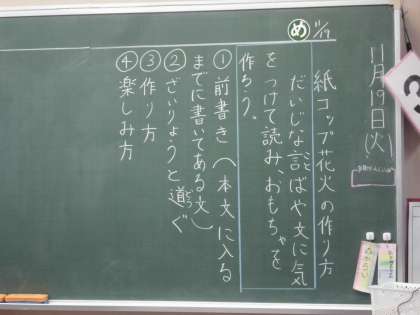 11月19日(火)
紙コップ花火の作り方
め 11/19
だいじな言ばや文に気
をつけて読み、おもちゃを
作ろう。
①前書き(本文に入る
までに書いてある文)
②ざいりょうと道ぐ
どう
③作り方
④楽しみ方